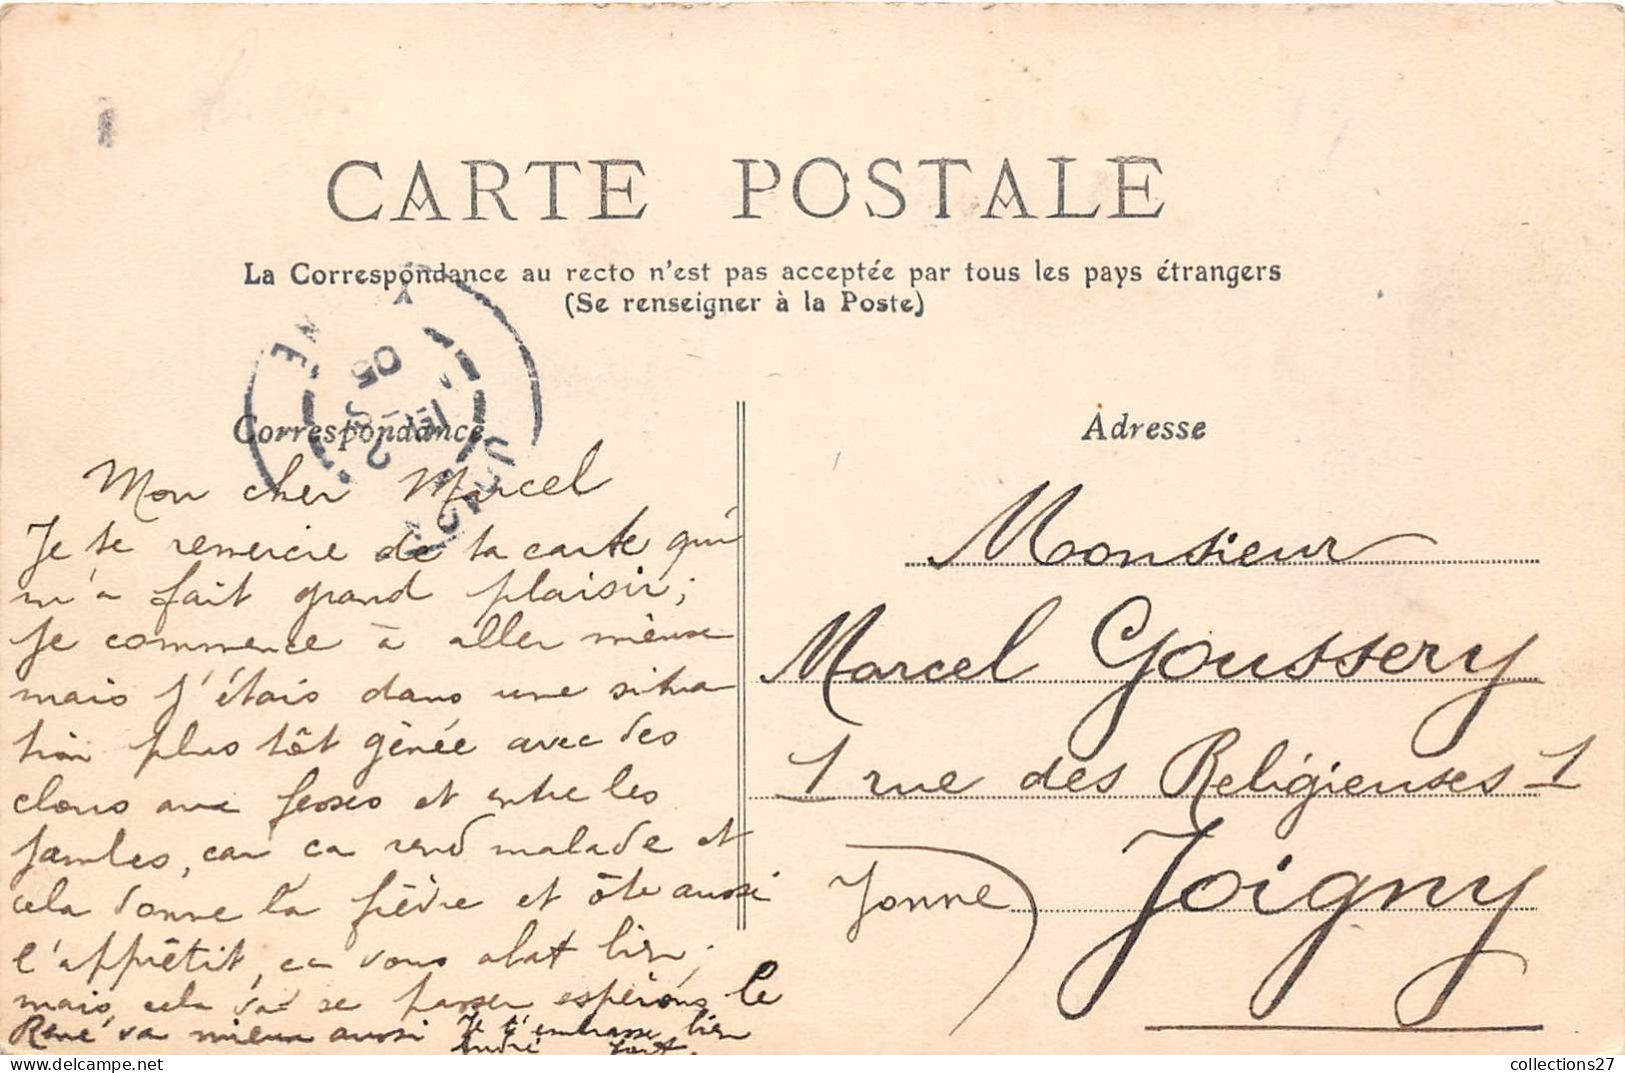 CARTE POSTALE
La Correspondance au recto n'est pas acceptée par tous les pays étrangers
(Se renseigner à la Poste)
Correspondance
Mon cher Marcel
Je te remercie de ta carte qui
m'a fait grand plaisir;
je commence à aller mieux
mais j'étais dans une situa
tion plus tôt gênée avec des
clous aux fesses et entre les
jambes, car ca rend malade et
cela donne la fièvre et ôte aussi
l'appêtit, ca vous abat bien;
mais cela va se passer espérons le
René va mieux aussi Je t'embrasse bien
André fort.
Adresse
Monsieur
Marcel Goussery
1 rue des Religieuses 1
Joigny
Yonne
JOIGNY
NE
2
05
collections27